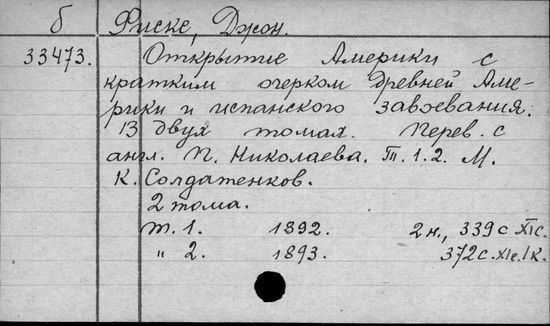 б Фиске, Джон.
33473. Открытие Америки с
кратким очерком древней Аме-
рики и испанского завоевания.
В двух томах. Перев. с
англ. П. Николаева. Т. 1. 2. М.
К. Солдатенков.
2 тома.
т. 1. 1892. 2 н., 339 с XI с.
„ 2. 1893. 372 с. XI с. 1 к.